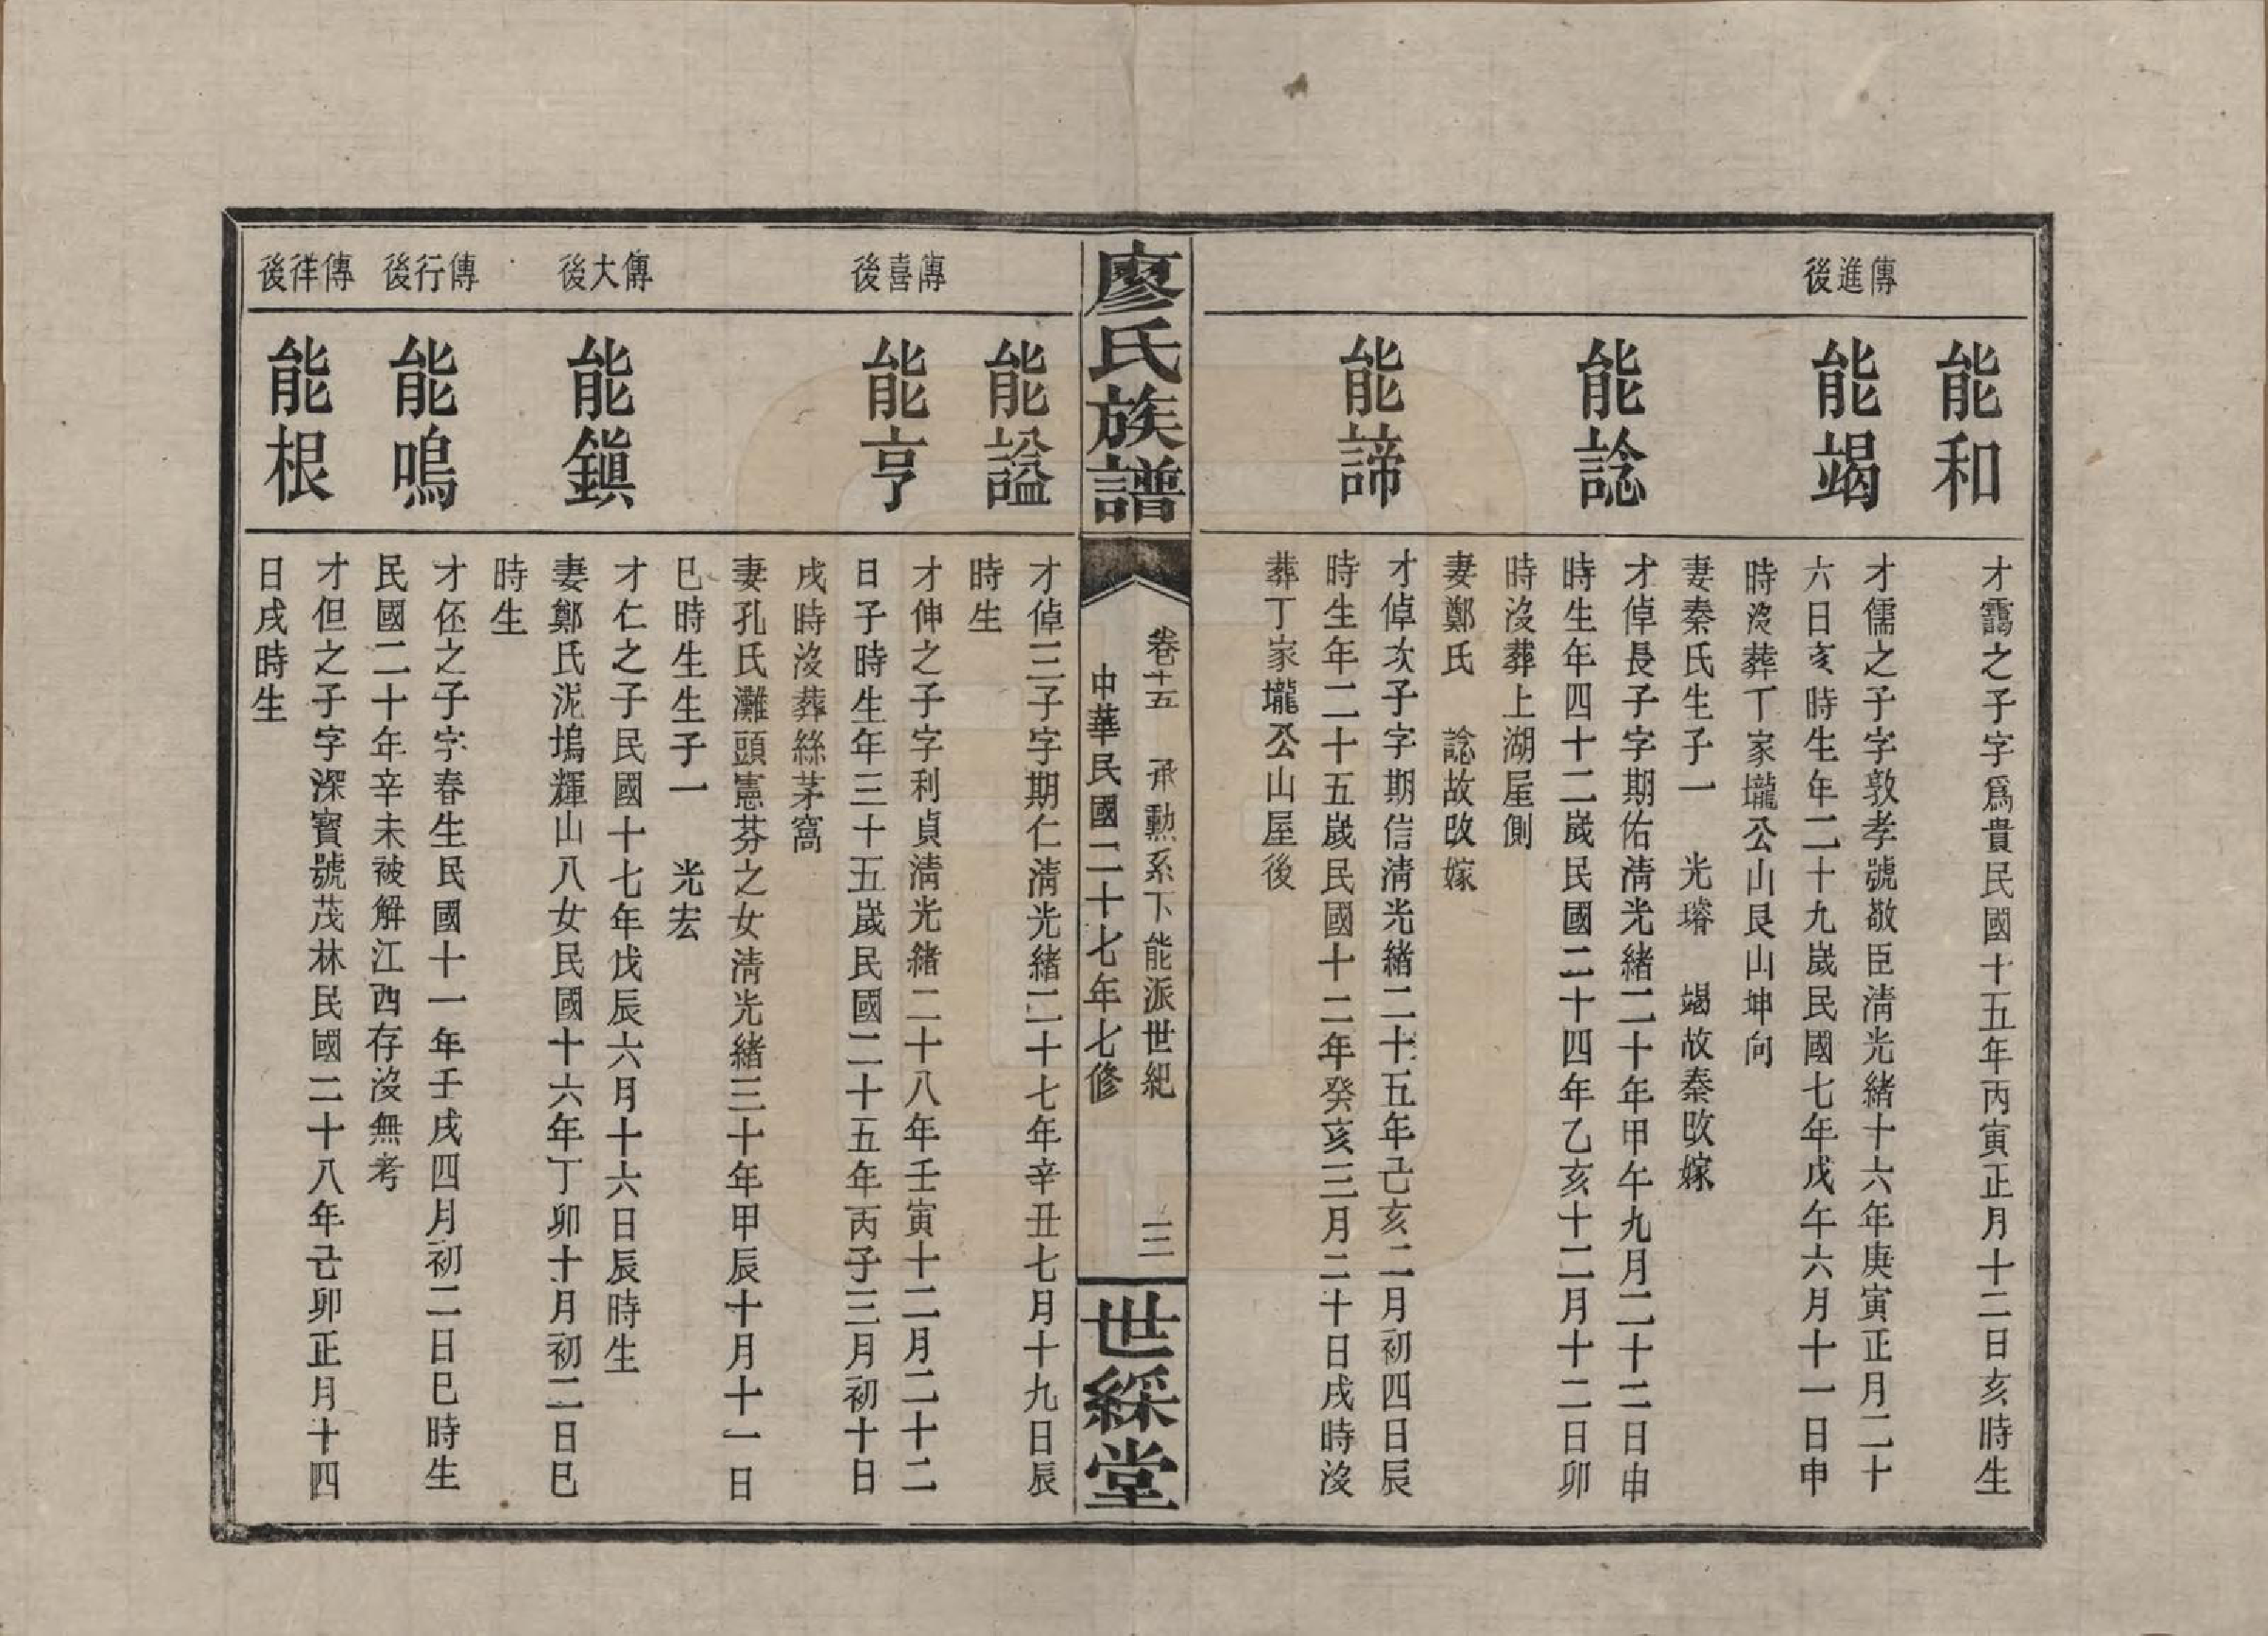 傳進後
能和
才靄之子字爲貴民國十五年丙寅正月十二日亥時生
能竭
才儒之子字敦孝號敬臣淸光緒十六年庚寅正月二十
六日亥時生年二十九歲民國七年戊午六月十一日申
時沒葬丁家壠公山艮山坤向
妻秦氏生子一 光璿 竭故秦改嫁
能諗
才倬長子字期佑淸光緒二十年甲午九月二十二日申
時生年四十二歲民國二十四年乙亥十二月十二日卯
時沒葬上湖屋側
妻鄭氏 諗故改嫁
能諦
才倬次子字期信淸光緒二十五年己亥二月初四日辰
時生年二十五歲民國十二年癸亥三月二十日戌時沒
葬丁家壠公山屋後
廖氏族譜
卷十五 承勳系下能派世紀 三
中華民國二十七年七修
世綵堂
能謚
才倬三子字期仁淸光緒二十七年辛丑七月十九日辰
時生
傳喜後
能亨
才伸之子字利貞淸光緒二十八年壬寅十二月二十二
日子時生年三十五歲民國二十五年丙子三月初十日
戌時沒葬絲茅窩
妻孔氏灘頭憲芬之女淸光緒三十年甲辰十月十一日
巳時生生子一 光宏
傳大後
能鎭
才仁之子民國十七年戊辰六月十六日辰時生
妻鄭氏泥塢輝山八女民國十六年丁卯十月初二日巳
時生
傳行後
能鳴
才伾之子字春生民國十一年壬戌四月初二日巳時生
民國二十年辛未被解江西存沒無考
傳徉後
能根
才但之子字深寶號茂林民國二十八年己卯正月十四
日戌時生